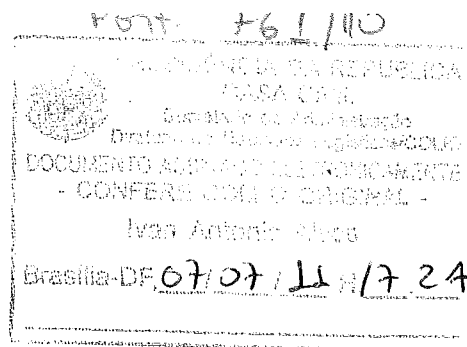 PORT. 761/10
PRESIDÊNCIA DA REPUBLICA
CASA CIVIL
Diretoria de
DOCUMENTO ASSINADO ELETRONICAMENTE
- CONFERE COM O ORIGINAL -
Ivan Antonio Alves
Brasília-DF, 07/07/11 H/17.24